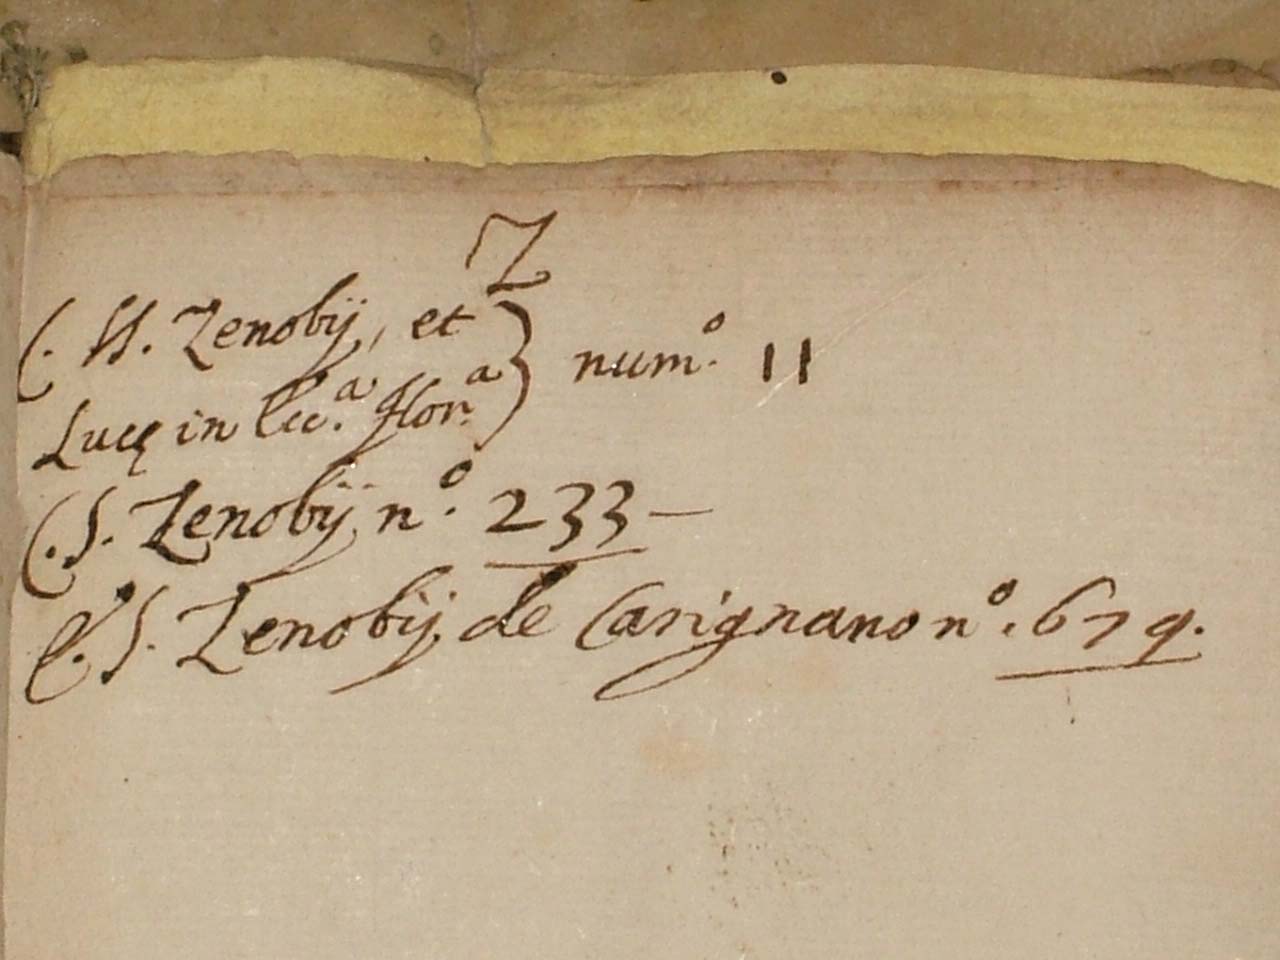 Z
C. SS. Zenobij, et } num.º 11
Lucę in Ecc.ª Flor.ª
C. S. Zenobij n.º 233 —
C. S. Zenobij de Carignano nº. 679.